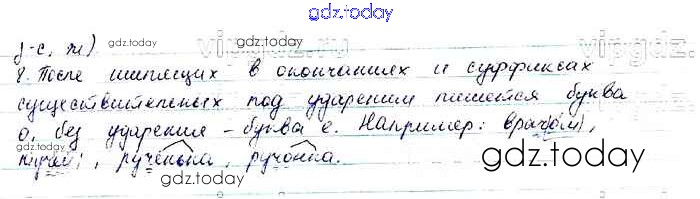 gdz.today
д-с, ж)
gdz.today
8. После шипящих в окончаниях и суффиксах
gdz.today
существительных под ударением пишется буква
о, без ударения - буква е. Например: врачом,
тучей, рученька, ручонка.
gdz.today
gdz.today
gdz.today